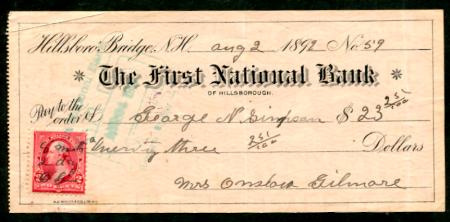 Hillsboro Bridge, N.H. aug 2 1892 No 59
The First National Bank
OF HILLSBOROUGH.
Pay to the
order of George N Simpson $ 23 251/100
Twenty three 251/100 Dollars
Mrs Onslow Gilmore